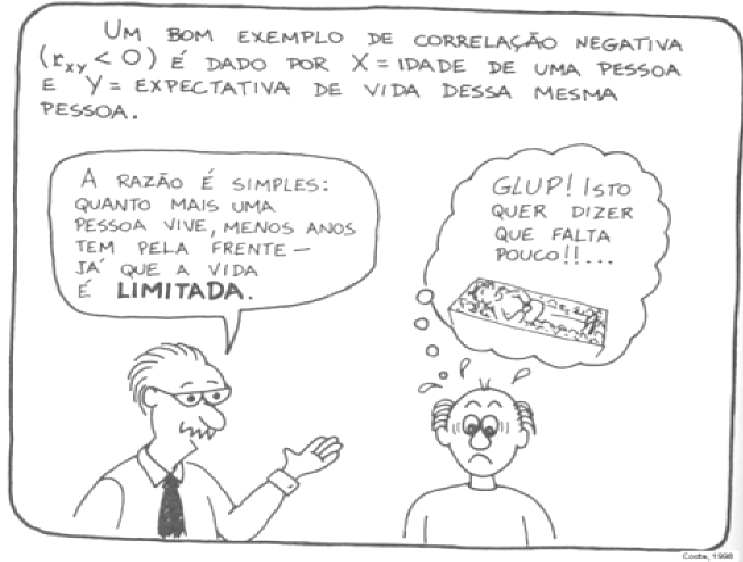 UM BOM EXEMPLO DE CORRELAÇÃO NEGATIVA
(rxy < 0) É DADO POR X = IDADE DE UMA PESSOA
E Y = EXPECTATIVA DE VIDA DESSA MESMA
PESSOA.
A RAZÃO É SIMPLES:
QUANTO MAIS UMA
PESSOA VIVE, MENOS ANOS
TEM PELA FRENTE –
JÁ QUE A VIDA
É LIMITADA.
GLUP! ISTO
QUER DIZER
QUE FALTA
POUCO!!...
Costa, 1998